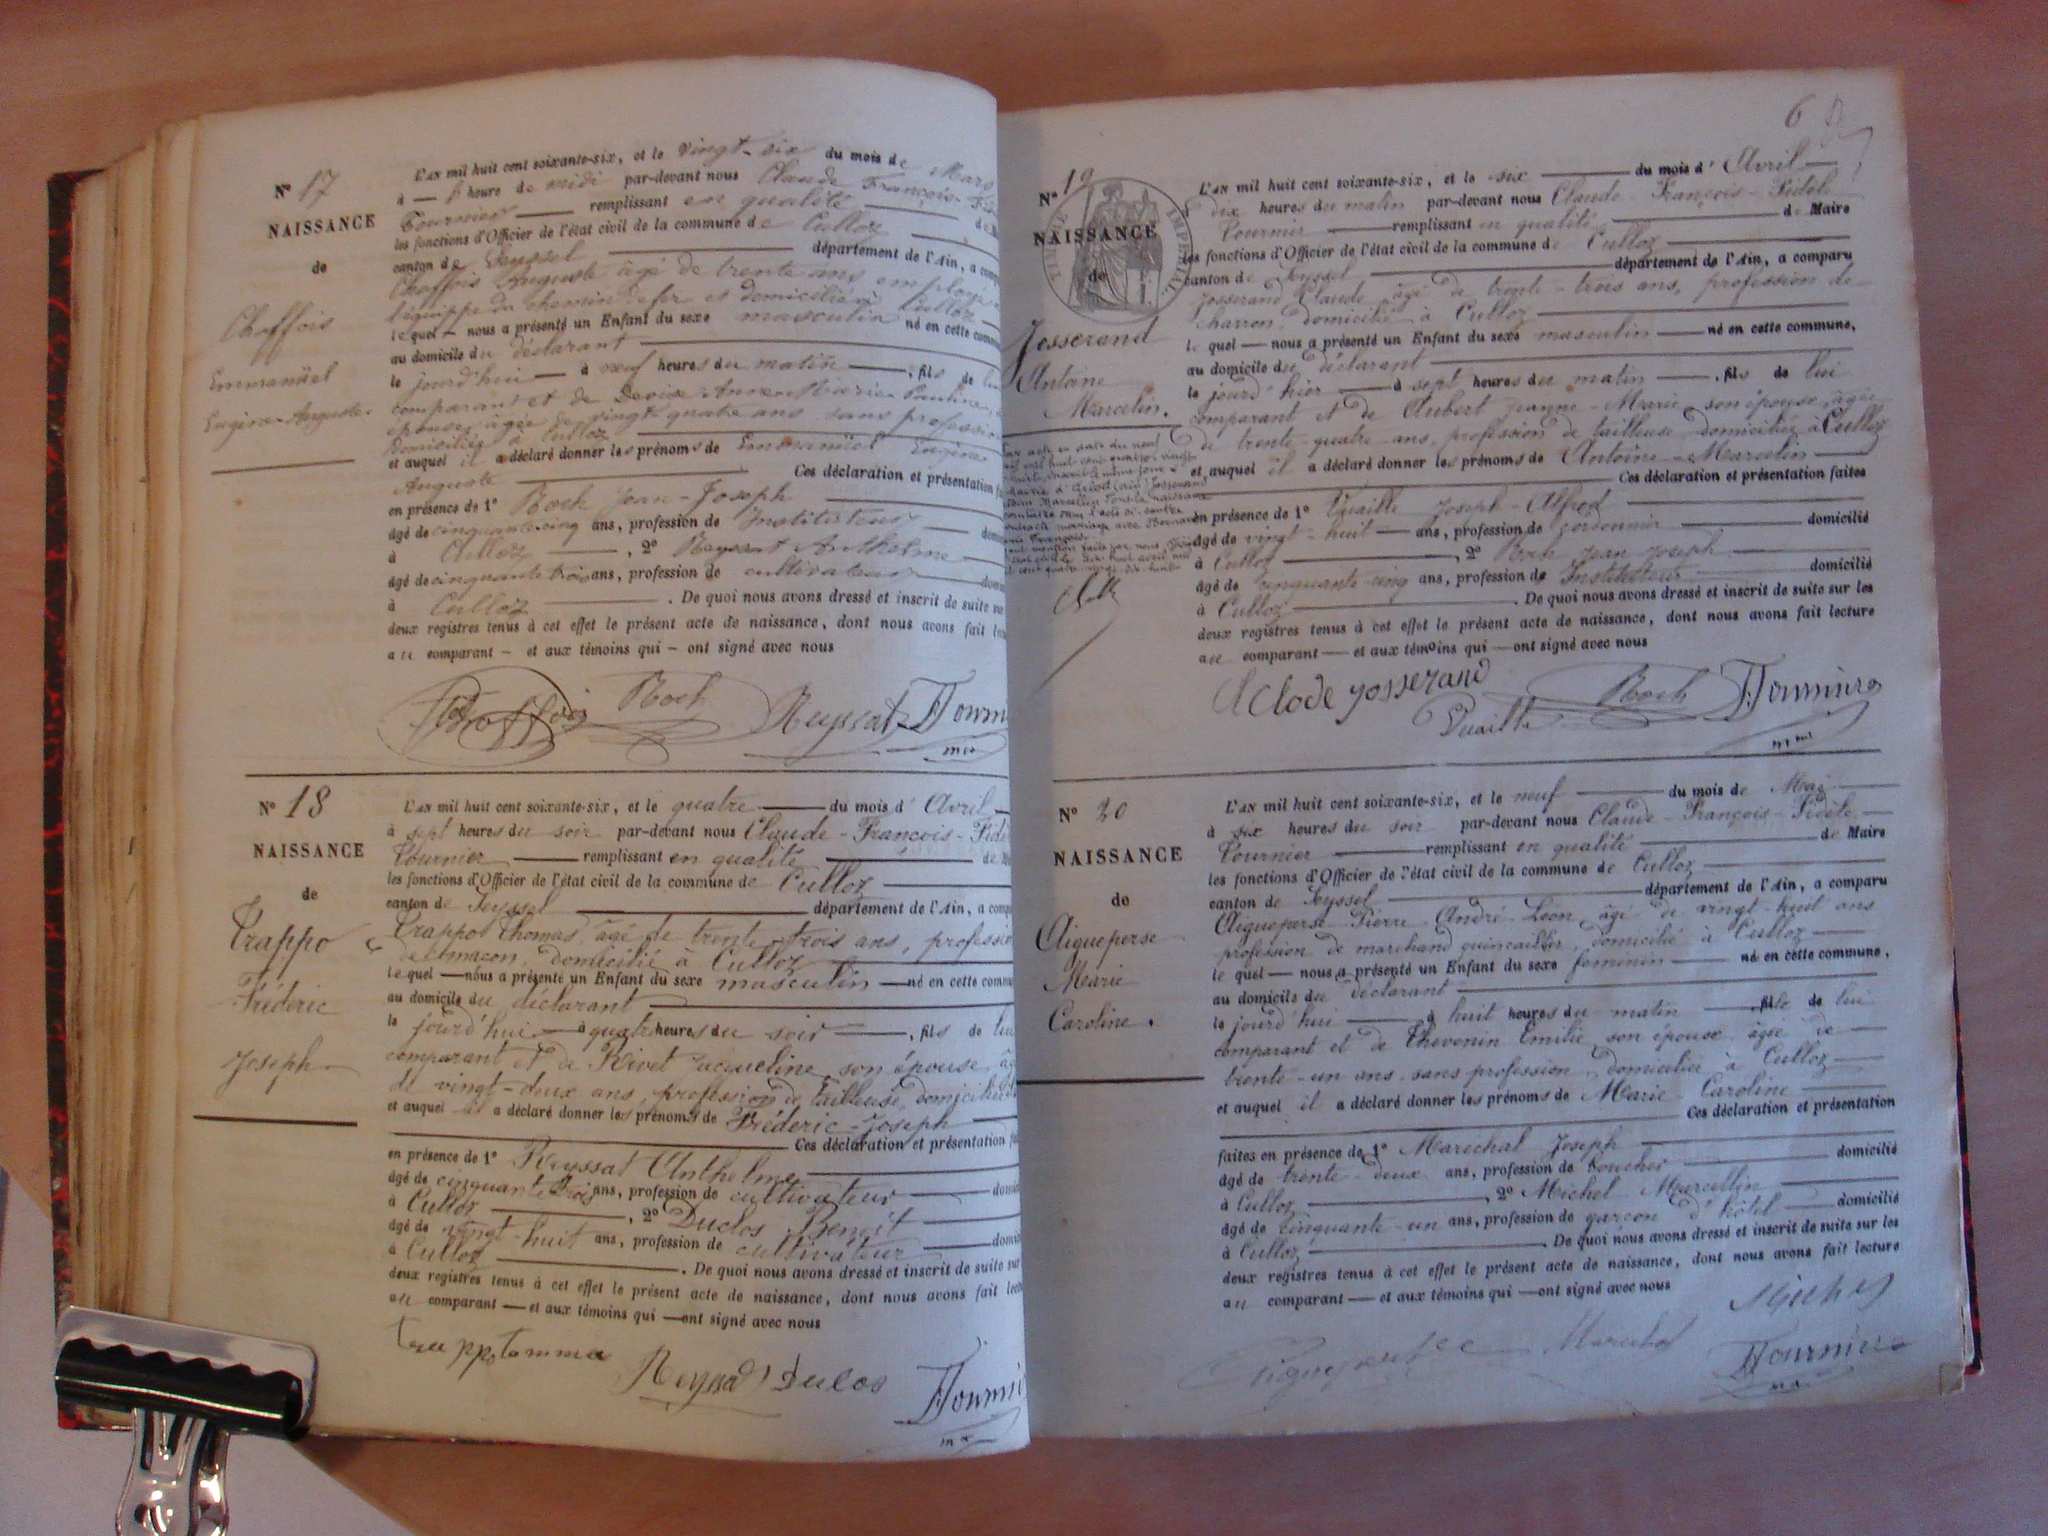 Nº 17
NAISSANCE
de
Choffois
Emmanüel
Eugène-Auguste
L'AN mil huit cent soixante-six, et le vingt-six du mois de Mars
à heure de midi par-devant nous Claude François
Fournier remplissant en qualité
les fonctions d'Officier de l'état civil de la commune de Culloz
canton de Seyssel département de l'Ain, a comp
Choffois Auguste âgé de trente ans employé
à l'équippe du chemin de fer et domicilié à Culloz
lequel nous a présenté un Enfant du sexe masculin né en cette commun
au domicile du déclarant
le jourd'hui à neuf heures du matin, fils de lui
comparant et de Anne Marie Pauline
épouse, âgée de vingt quatre ans sans profession
domiciliée à Culloz
et auquel il a déclaré donner les prénoms de Emmanüel Eugène
Auguste Ces déclaration et présentation fa
en présence de 1º Roch Jean-Joseph
âgé de cinquante-cinq ans, profession de Instituteur
à Culloz, 2º Reyssat Anthelme
âgé de cinquante trois ans, profession de cultivateur
à Culloz. De quoi nous avons dressé et inscrit de suite sur
deux registres tenus à cet effet le présent acte de naissance, dont nous avons fait
au comparant et aux témoins qui ont signé avec nous
Choffois Roch Reyssat Fourni
Nº 18
NAISSANCE
de
Trappo
Fréderic
Joseph
L'AN mil huit cent soixante-six, et le quatre du mois d'Avril
à sept heures du soir par-devant nous Claude-François-Fidè
Fournier remplissant en qualité
les fonctions d'Officier de l'état civil de la commune de Culloz
canton de Seyssel département de l'Ain, a compa
Trappo Thomas, âgé de trente trois ans, professio
de maçon, domicilié à Culloz
lequel nous a présenté un Enfant du sexe masculin né en cette commu
au domicile du déclarant
le jourd'hui à quatre heures du soir, fils de lui
comparant et de Rivet Jacqueline, son épouse, âg
de vingt-deux ans, profession de tailleuse, domiciliée
et auquel il a déclaré donner les prénoms de Fréderic-Joseph
Ces déclaration et présentation fa
en présence de 1º Reyssat Anthelme
âgé de cinquante trois ans, profession de cultivateur
à Culloz, 2º Duclos Benoît
âgé de vingt-huit ans, profession de cultivateur
à Culloz. De quoi nous avons dressé et inscrit de suite sur
deux registres tenus à cet effet le présent acte de naissance, dont nous avons fait lect
au comparant et aux témoins qui ont signé avec nous
Reyssat Duclos Fourni
6
Nº 19
TIMBRE IMPERIAL
NAISSANCE
de
Josserand
Antoine
Marcelin.
L'AN mil huit cent soixante-six, et le six du mois d'Avril
à dix heures du matin par-devant nous Claude-François-Fidèle
Fournier remplissant en qualité de Maire
les fonctions d'Officier de l'état civil de la commune de Culloz
canton de Seyssel département de l'Ain, a comparu
Josserand Claude, âgé de trente-trois ans, profession de
charron, domicilié à Culloz
lequel nous a présenté un Enfant du sexe masculin né en cette commune,
au domicile du déclarant
le jourd'hier à sept heures du matin, fils de lui
comparant et de Aubert Jeanne-Marie son épouse, âgée
de trente-quatre ans, profession de tailleuse, domiciliée à Culloz
et auquel il a déclaré donner les prénoms de Antoine-Marcelin
Ces déclaration et présentation faites
en présence de 1º Joseph-Alfred
âgé de vingt-huit ans, profession de domicilié
à Culloz, 2º Roch Jean Joseph
âgé de cinquante cinq ans, profession de Instituteur domicilié
à Culloz. De quoi nous avons dressé et inscrit de suite sur les
deux registres tenus à cet effet le présent acte de naissance, dont nous avons fait lecture
au comparant et aux témoins qui ont signé avec nous
Clode Josserand Roch Fournier
Nº 20
NAISSANCE
de
Aigueperse
Marie
Caroline.
L'AN mil huit cent soixante-six, et le neuf du mois de Mai
à six heures du soir par-devant nous Claude-François-Fidèle
Fournier remplissant en qualité de Maire
les fonctions d'Officier de l'état civil de la commune de Culloz
canton de Seyssel département de l'Ain, a comparu
Aigueperse Pierre-André-Léon, âgé de vingt-huit ans
profession de marchand quincailler, domicilié à Culloz
lequel nous a présenté un Enfant du sexe feminin né en cette commune,
au domicile du déclarant
le jourd'hui à huit heures du matin, fille de lui
comparant et de Thevenin Emilie son épouse âgée de
trente-un ans, sans profession, domiciliée à Culloz
et auquel il a déclaré donner les prénoms de Marie Caroline
Ces déclaration et présentation
faites en présence de 1º Maréchal Joseph domicilié
âgé de trente-deux ans, profession de boucher
à Culloz, 2º Michel Marcellin domicilié
âgé de cinquante-un ans, profession de garçon d'hôtel
à Culloz. De quoi nous avons dressé et inscrit de suite sur les
deux registres tenus à cet effet le présent acte de naissance, dont nous avons fait lecture
au comparant et aux témoins qui ont signé avec nous
Michel
Aigueperse Maréchal Fournier